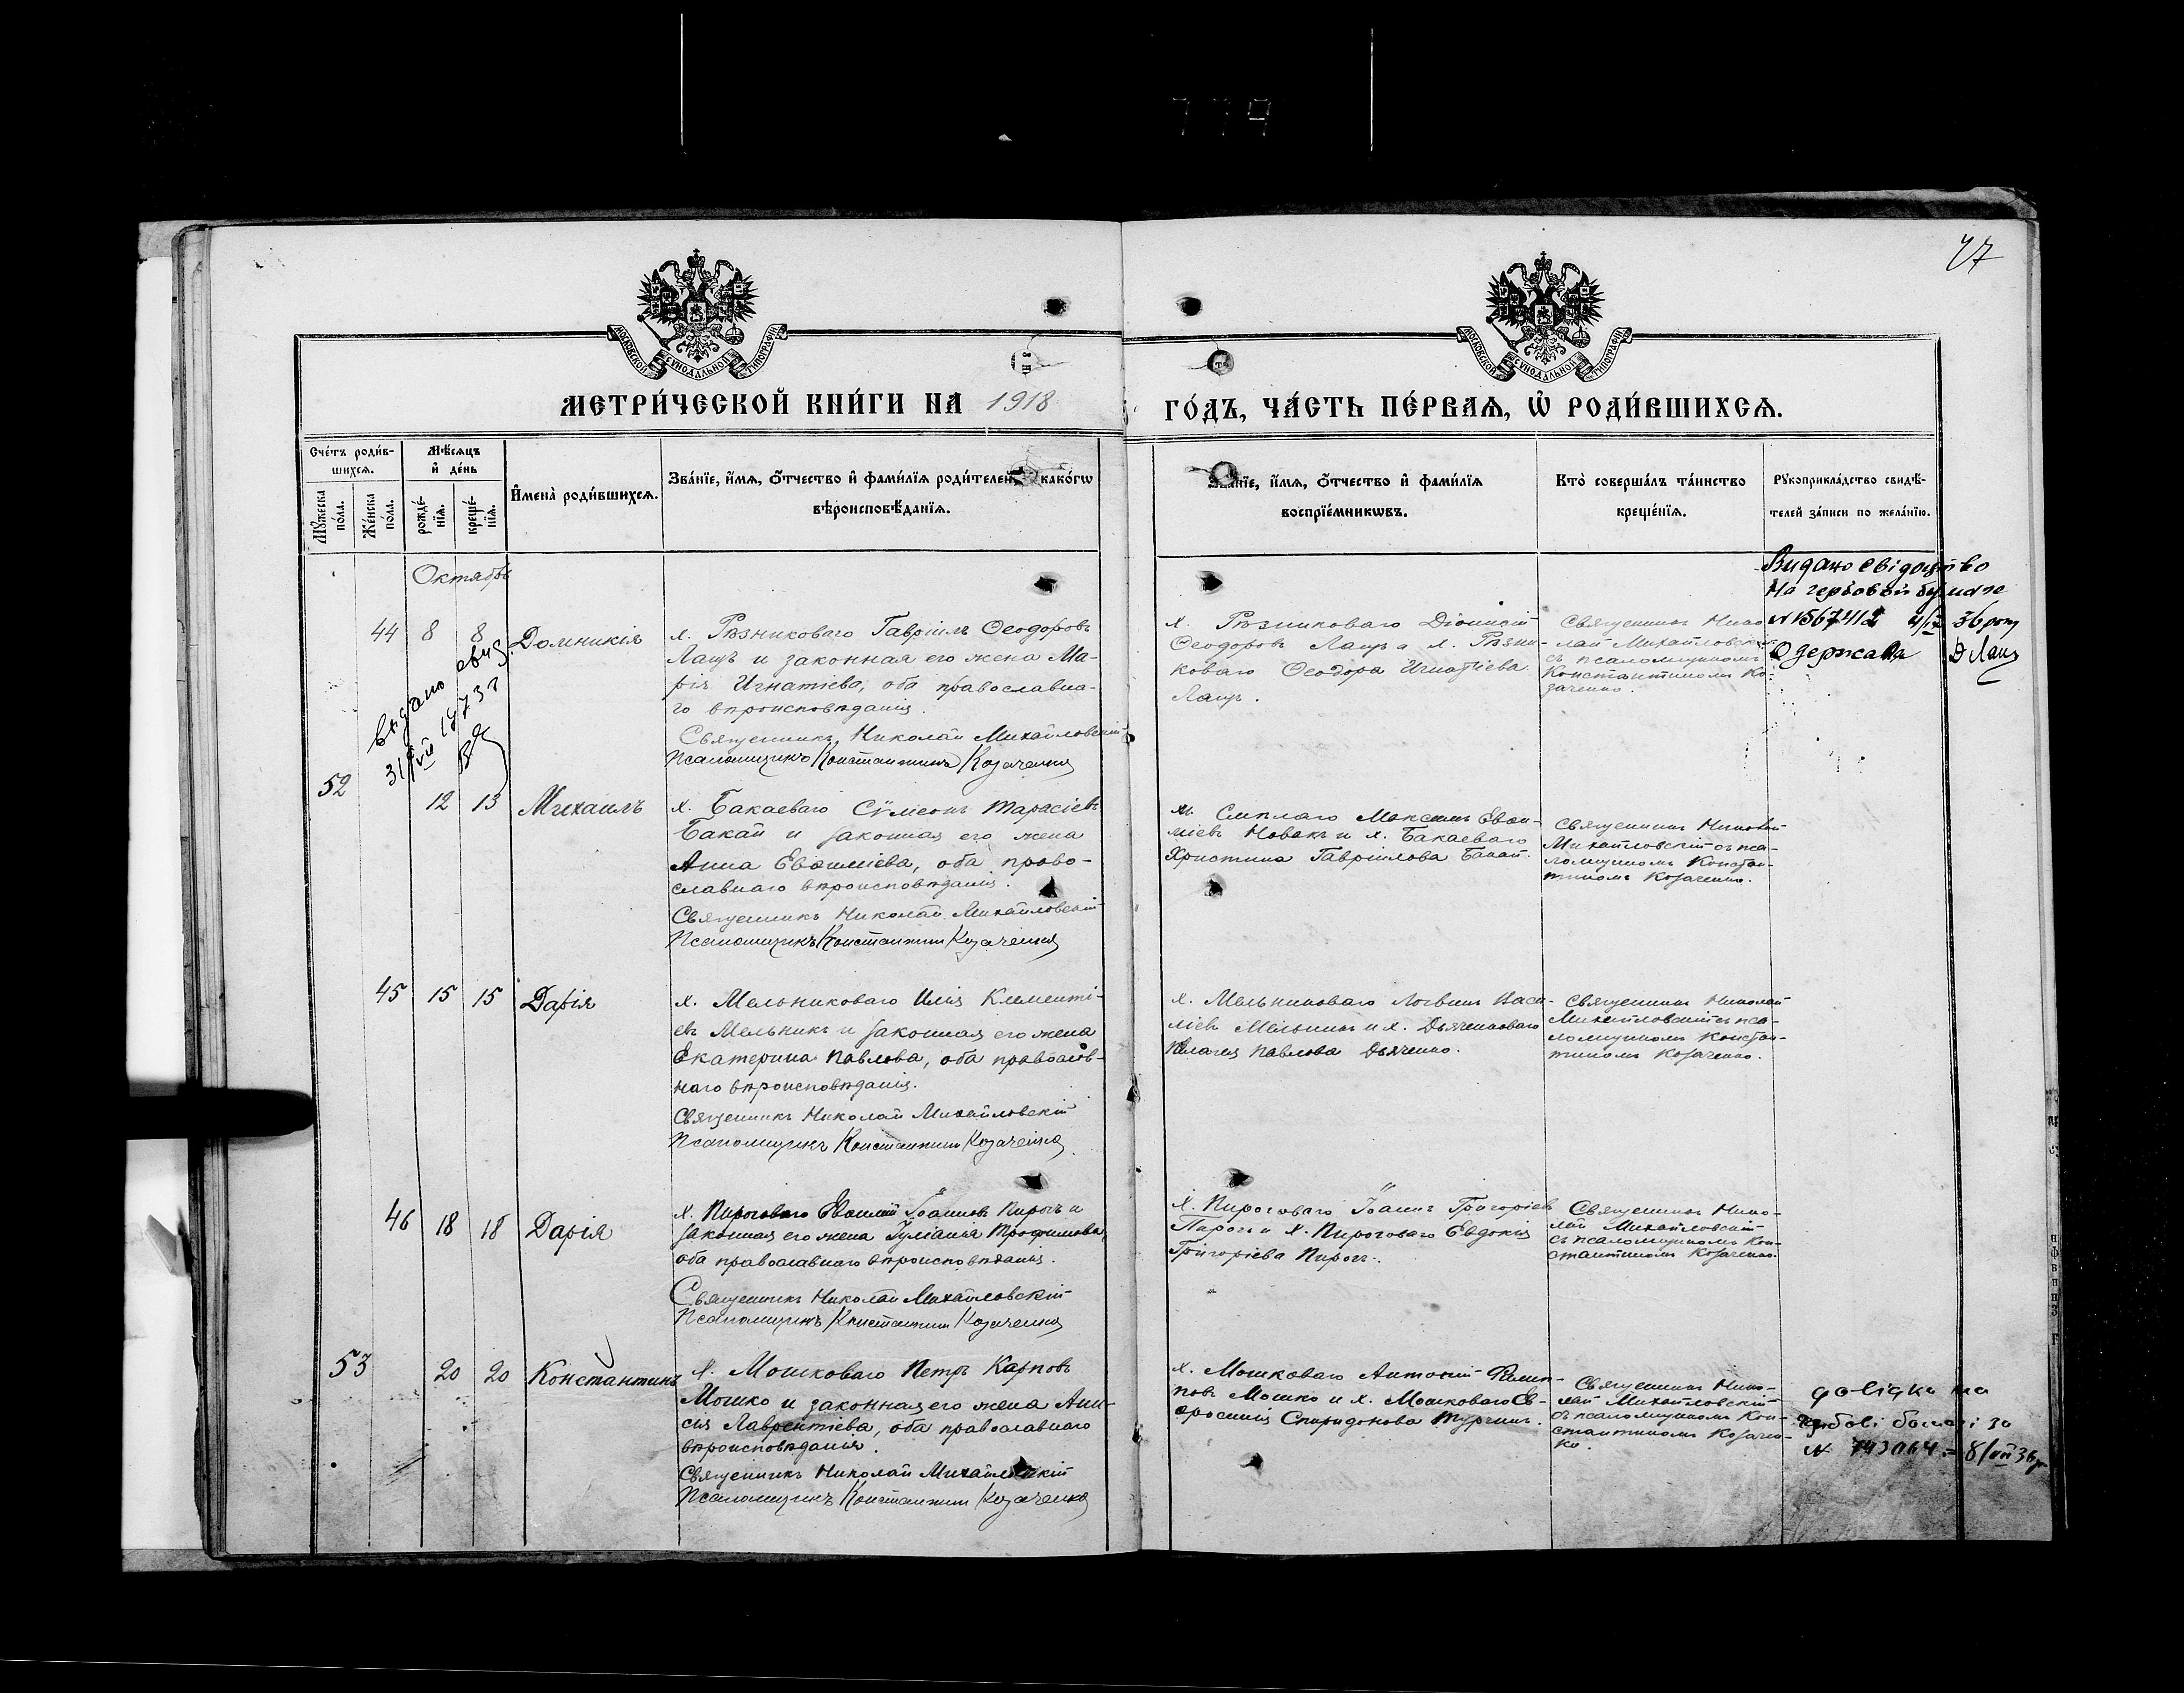 779
47
МОСКОВСКОЙ СѴНОДАЛЬНОЙ ТИПОГРАФІИ
МОСКОВСКОЙ СѴНОДАЛЬНОЙ ТИПОГРАФІИ
МЕТРИ́ЧЕСКОЙ КНИ́ГИ НА 1918
ГО́ДЪ, ЧА́СТЬ ПЕ́РВАѦ, Ѡ҆ РОДИ́ВШИХСѦ.
Сче́тъ роди́в-
шихсѧ.
Мꙋ́жеска по́ла.
Же́нска по́ла.
Мѣ́сѧцъ
и҆ де́нь
рожде́-
нїѧ.
креще́-
нїѧ.
И҆мена̀ роди́вшихсѧ.
Зва́нїе, и҆́мѧ, ѻ҆́тчество и҆ фами́лїѧ роди́телей, како́гѡ
вѣроисповѣ́данїѧ.
Зва́нїе, и҆́мѧ, ѻ҆́тчество и҆ фами́лїѧ
воспрїе́мникѡвъ.
Кто̀ соверша́лъ та́инство
креще́нїѧ.
Рꙋкоприкла́дство свидѣ́-
телей за́писи по жела́нїю.
Октябрь
44 8 8 Домникія
х. Рѣзниковаго Гавріилъ Ѳеодоровъ
Лащъ и законная его жена Ма-
рія Игнатіева, оба православна-
го вѣроисповѣданія.
Священникъ Николай Михайловскій
Псаломщикъ Константинъ Козаченко
х. Рѣзниковаго Діонисій
Ѳеодоровъ Лащъ и х. Рѣзни-
коваго Ѳеодора Игнатіева
Лащъ.
Священникъ Нико-
лай Михайловскій
съ псаломщикомъ
Константиномъ Ко-
заченко.
Видано свідоцтво
на гербовой бумаге
36 року
Одержала ДЛащ
видано
31/VII 1973 г
52 12 13 Михаилъ
х. Бакаеваго Сѵмеонъ Тарасіевъ
Бакай и законная его жена
Анна Евѳиміева, оба право-
славнаго вѣроисповѣданія.
Священникъ Николай Михайловскій
Псаломщикъ Константинъ Козаченко
м. Смѣлаго Максимъ Евѳи-
міевъ Новакъ и х. Бакаеваго
Христина Гавріилова Бакай.
Священникъ Николай
Михайловскій съ пса-
ломщикомъ Констан-
тиномъ Козаченко.
45 15 15 Дарія
х. Мельниковаго Илія Клементі-
евъ Мельникъ и законная его жена
Екатерина Павлова, оба православ-
наго вѣроисповѣданія.
Священникъ Николай Михайловскій
Псаломщикъ Константинъ Козаченко
х. Мельниковаго Логвинъ Васи-
ліевъ Мельникъ и х. Дьяченковаго
Пелагія Павлова Дьяченко.
Священникъ Николай
Михайловскій съ пса-
ломщикомъ Констан-
тиномъ Козаченко.
46 18 18 Дарія
х. Пироговаго Евѳимій Іоанновъ Пирогъ и
законная его жена Іуліанія Трофимова,
оба православнаго вѣроисповѣданія.
Священникъ Николай Михайловскій
Псаломщикъ Константинъ Козаченко
х. Пироговаго Іоаннъ Григоріевъ
Пирогъ и х. Пироговаго Евдокія
Григоріева Пирогъ.
Священникъ Нико-
лай Михайловскій
съ псаломщикомъ Кон-
стантиномъ Козаченко.
53 20 20 Константинъ
х. Мошковаго Петръ Карповъ
Мошко и законная его жена Ани-
сія Лаврентіева, оба православнаго
вѣроисповѣданія.
Священникъ Николай Михайловскій
Псаломщикъ Константинъ Козаченко
х. Мошковаго Антоній Филип-
повъ Мошко и х. Мошковаго Ев-
фросинія Спиридонова Турчинъ.
Священникъ Нико-
лай Михайловскій
съ псаломщикомъ Кон-
стантиномъ Козачен-
ко.
довідка на
гербові бомазі за
№ 743064 = 8/VII 36 р